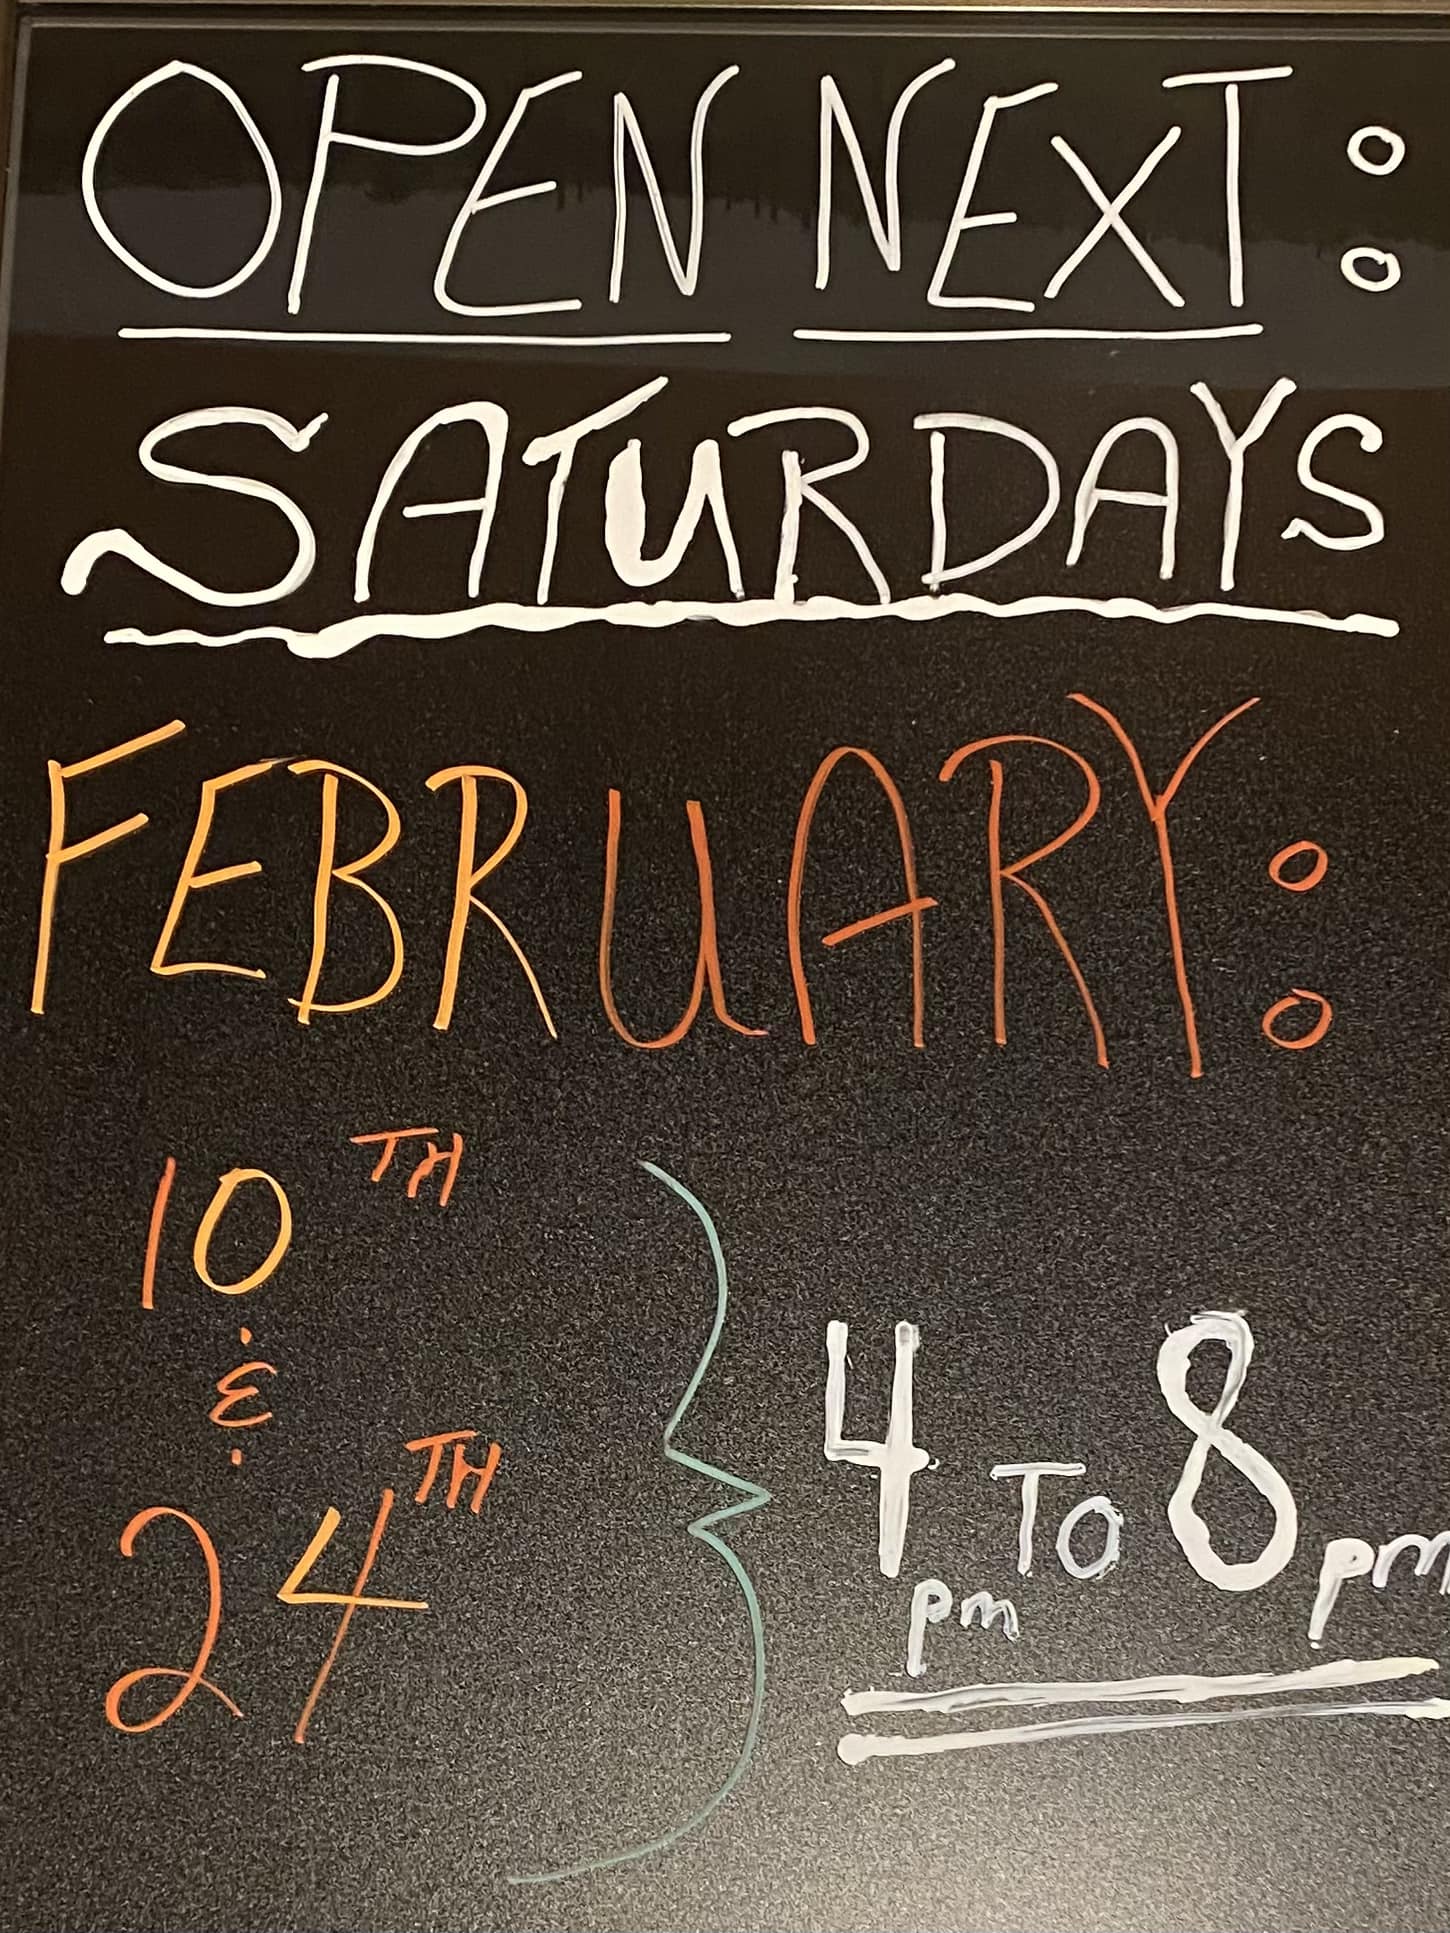 OPEN NEXT:
SATURDAYS
FEBRUARY:
10TH
&
24TH
4pm TO 8pm